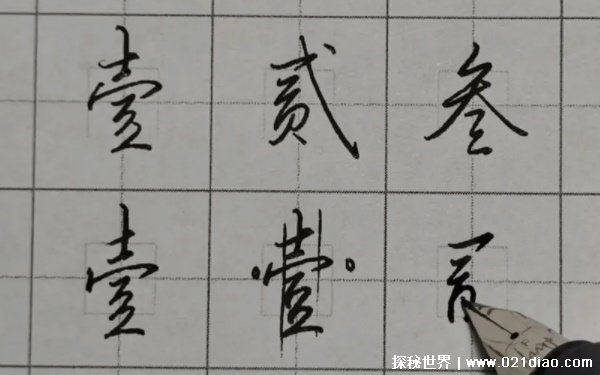 壹 贰 叁
壹 壹
探秘世界 | www.021diao.com